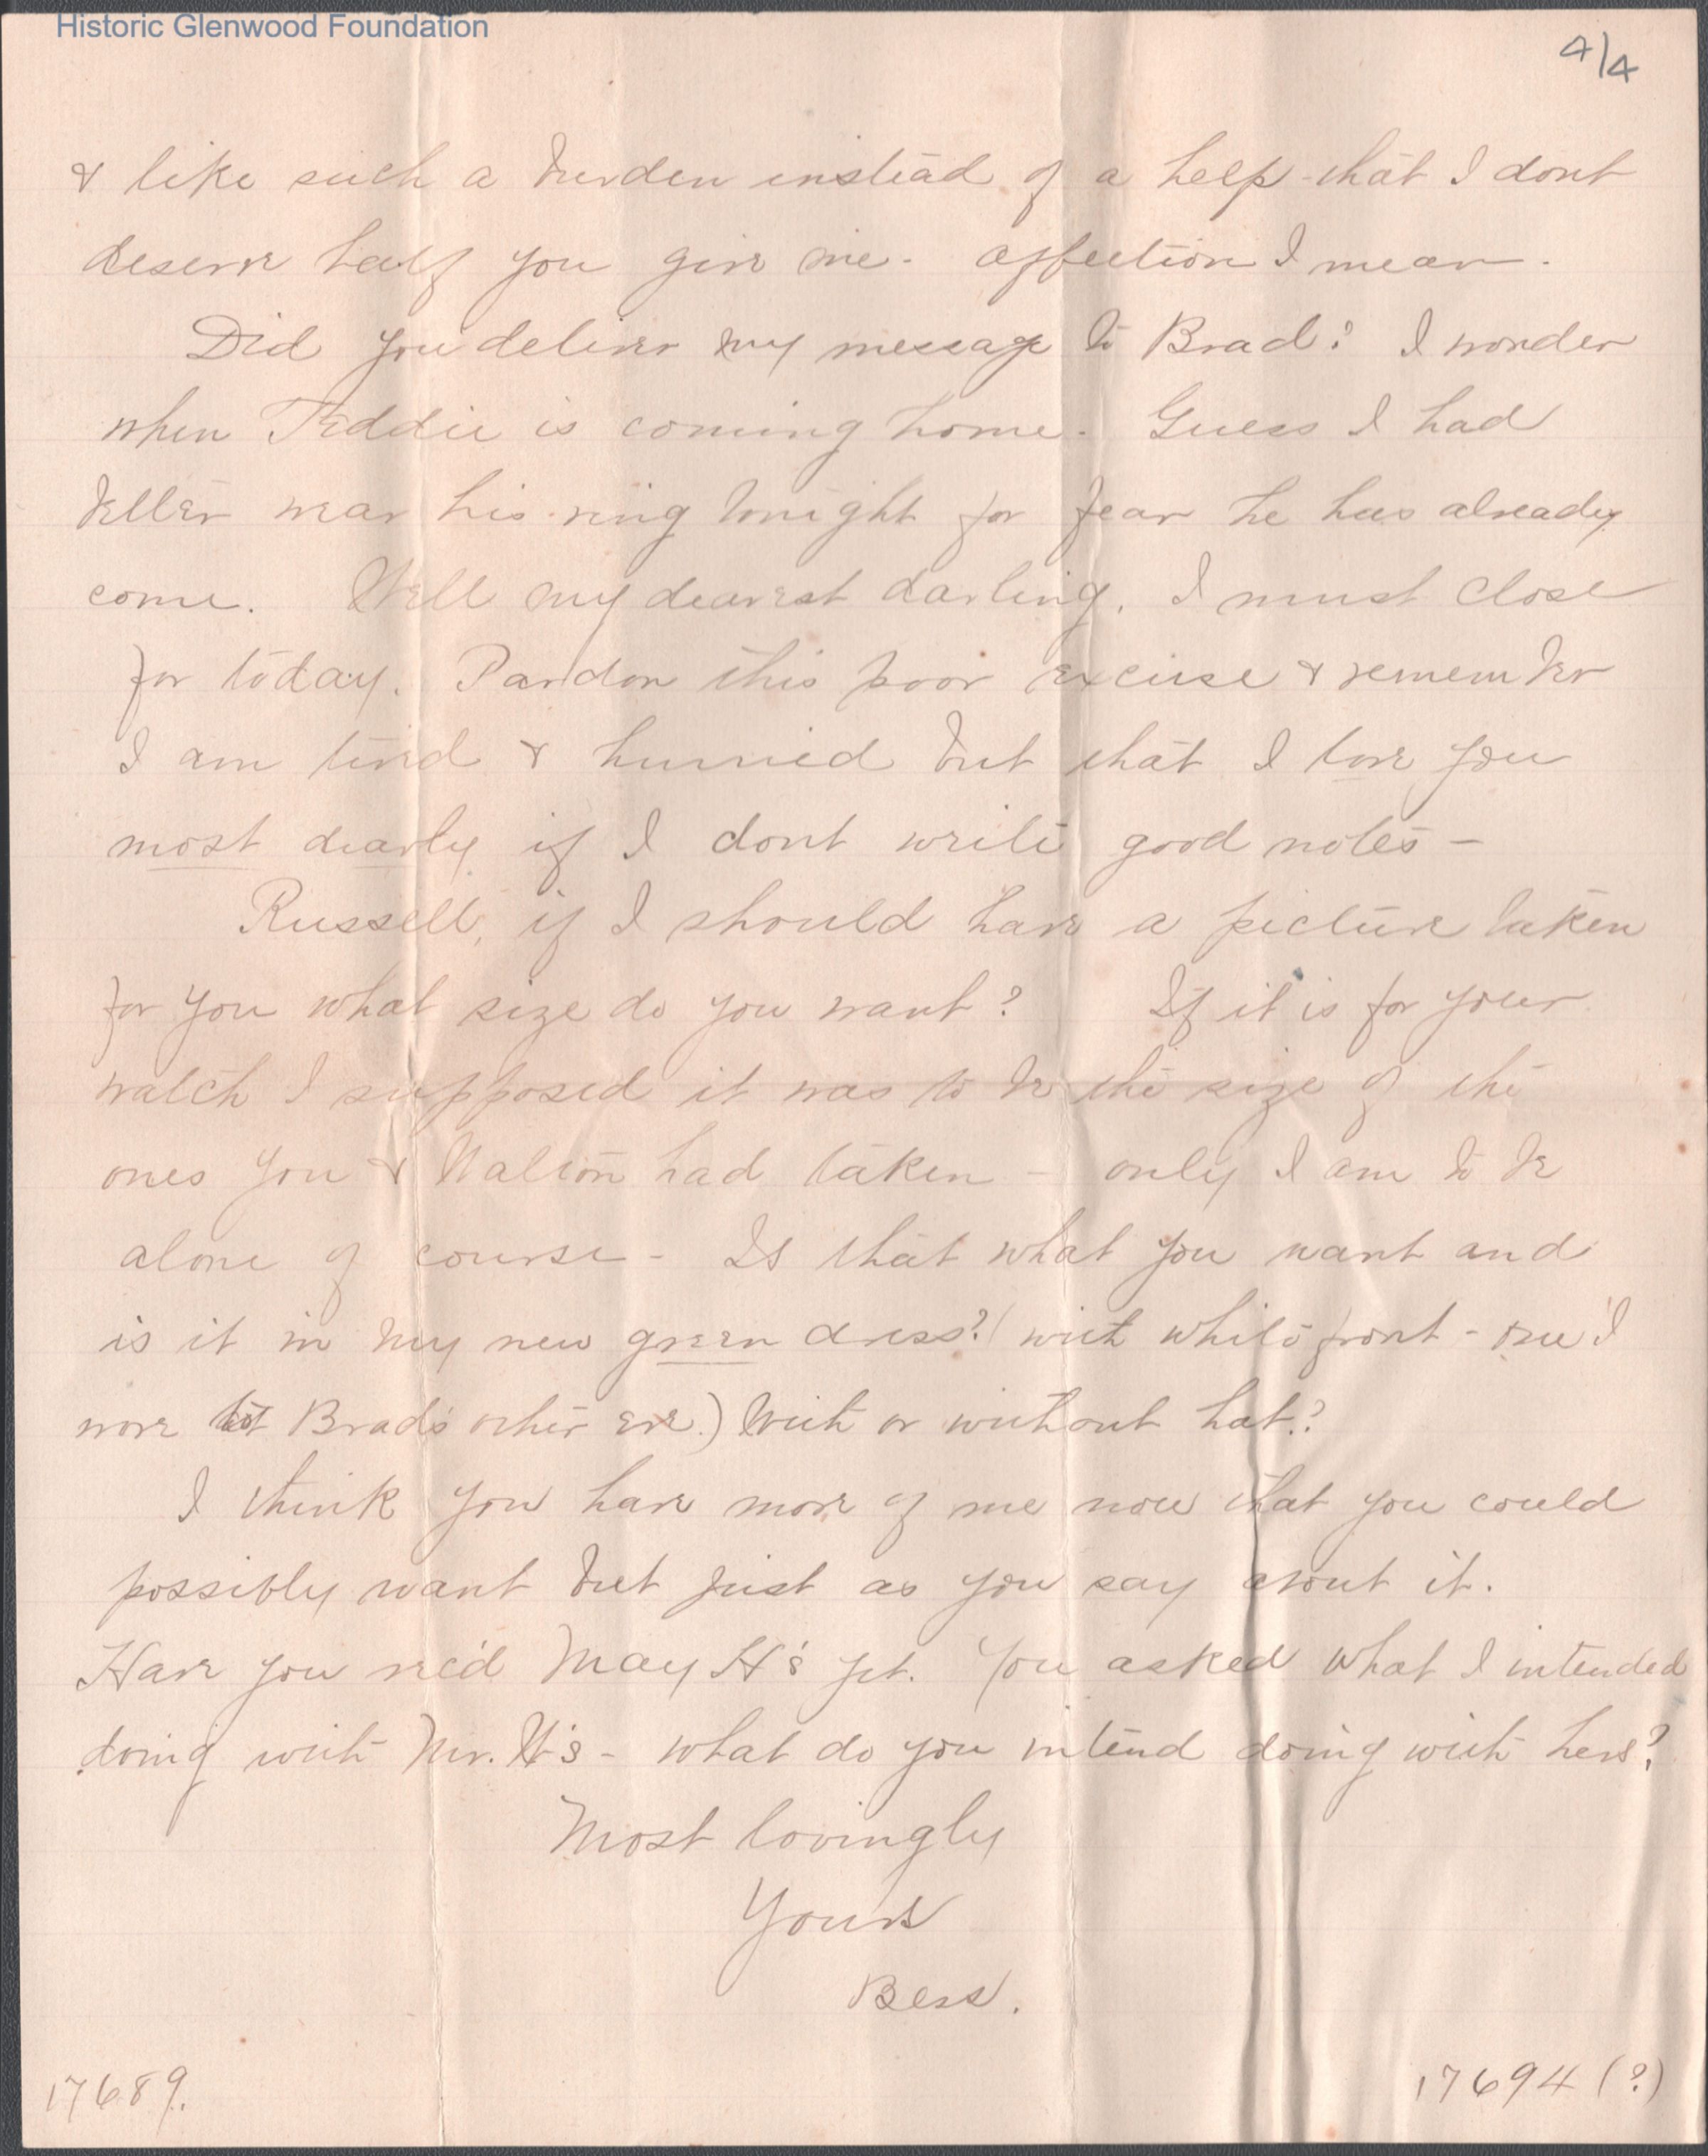 Historic Glenwood Foundation
4/4
& like such a burden instead of a help that I dont
deserve half you give me. affection I mean.
Did you deliver my message to Brad? I wonder
when Teddie is coming home. Guess I had
better wear his ring tonight for fear he has already
come. Well my dearest darling, I must close
for today. Pardon this poor excuse & remember
I am tired & hurried but that I love you
most dearly if I dont write good notes –
Russell, if I should have a picture taken
for you what size do you want? If it is for your
watch I supposed it was to be the size of the
ones you & Walton had taken – only I am to be
alone of course – Is that what you want and
is it in my new green dress? (with white front – one I
wore to Brad's other eve.) With or without hat?
I think you have more of me now that you could
possibly want but just as you say about it.
Have you rec'd May H's yet. You asked what I intended
doing with Mr. H's – what do you intend doing with hers?
Most lovingly
Yours
Bess.
17689.
17694 (?)